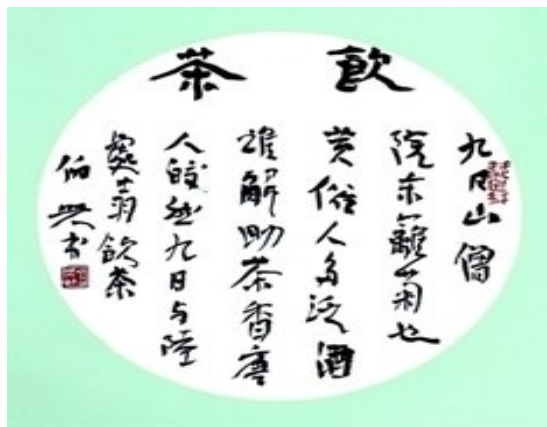 飲茶
九日山僧
院东籬菊也
黄俗人多泛酒
谁解助茶香唐
人皎然九日与陸
處士羽飲茶
伯兴书